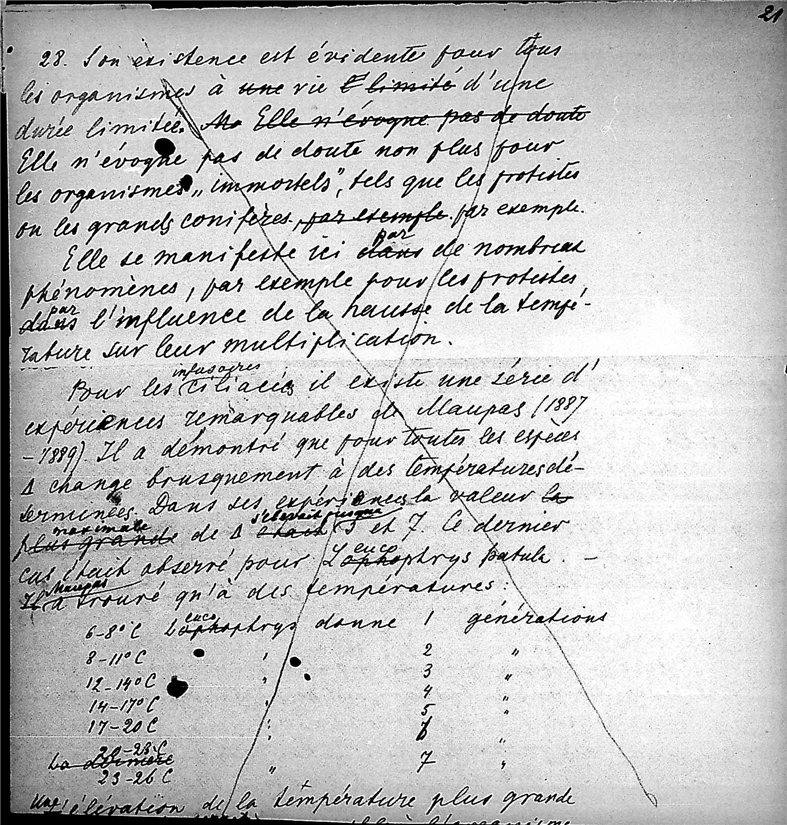 21
28. Son existence est évidente pour tous
les organismes à une vie et limité d'une
durée limitée. Ma Elle n'évoque pas de doute
Elle n'évoque pas de doute non plus pour
les organismes „immortels", tels que les protistes
ou les grands conifères, par exemple par exemple.
par
Elle se manifeste ici dans de nombreux
phénomènes, par exemple pour les protistes
par
dans l'influence de la hausse de la tempé-
rature sur leur multiplication.
infusoires
Pour les Ciliacées il existe une série d'
expériences remarquables de Maupas (1887
-1889). Il a démontré que pour toutes les espèces
Δ change brusquement à des températures dé-
terminées. Dans ses expériences la valeur la
maximale s'élevait jusque
plus grande de Δ était 5 et 7. Ce dernier
euco
cas était observé pour Lophophtrys patula. –
Maupas
Il a trouvé qu'à des températures:
euco
6-8°C Lophophtrys donne 1 générations
8-11°C „ 2 „
12-14°C „ 3 „
14-17°C „ 4 „
17-20 C „ 5 „
20-23 C „ 6 „
La dernière
23-26 C „ 7 „
Une élévation de la température plus grande